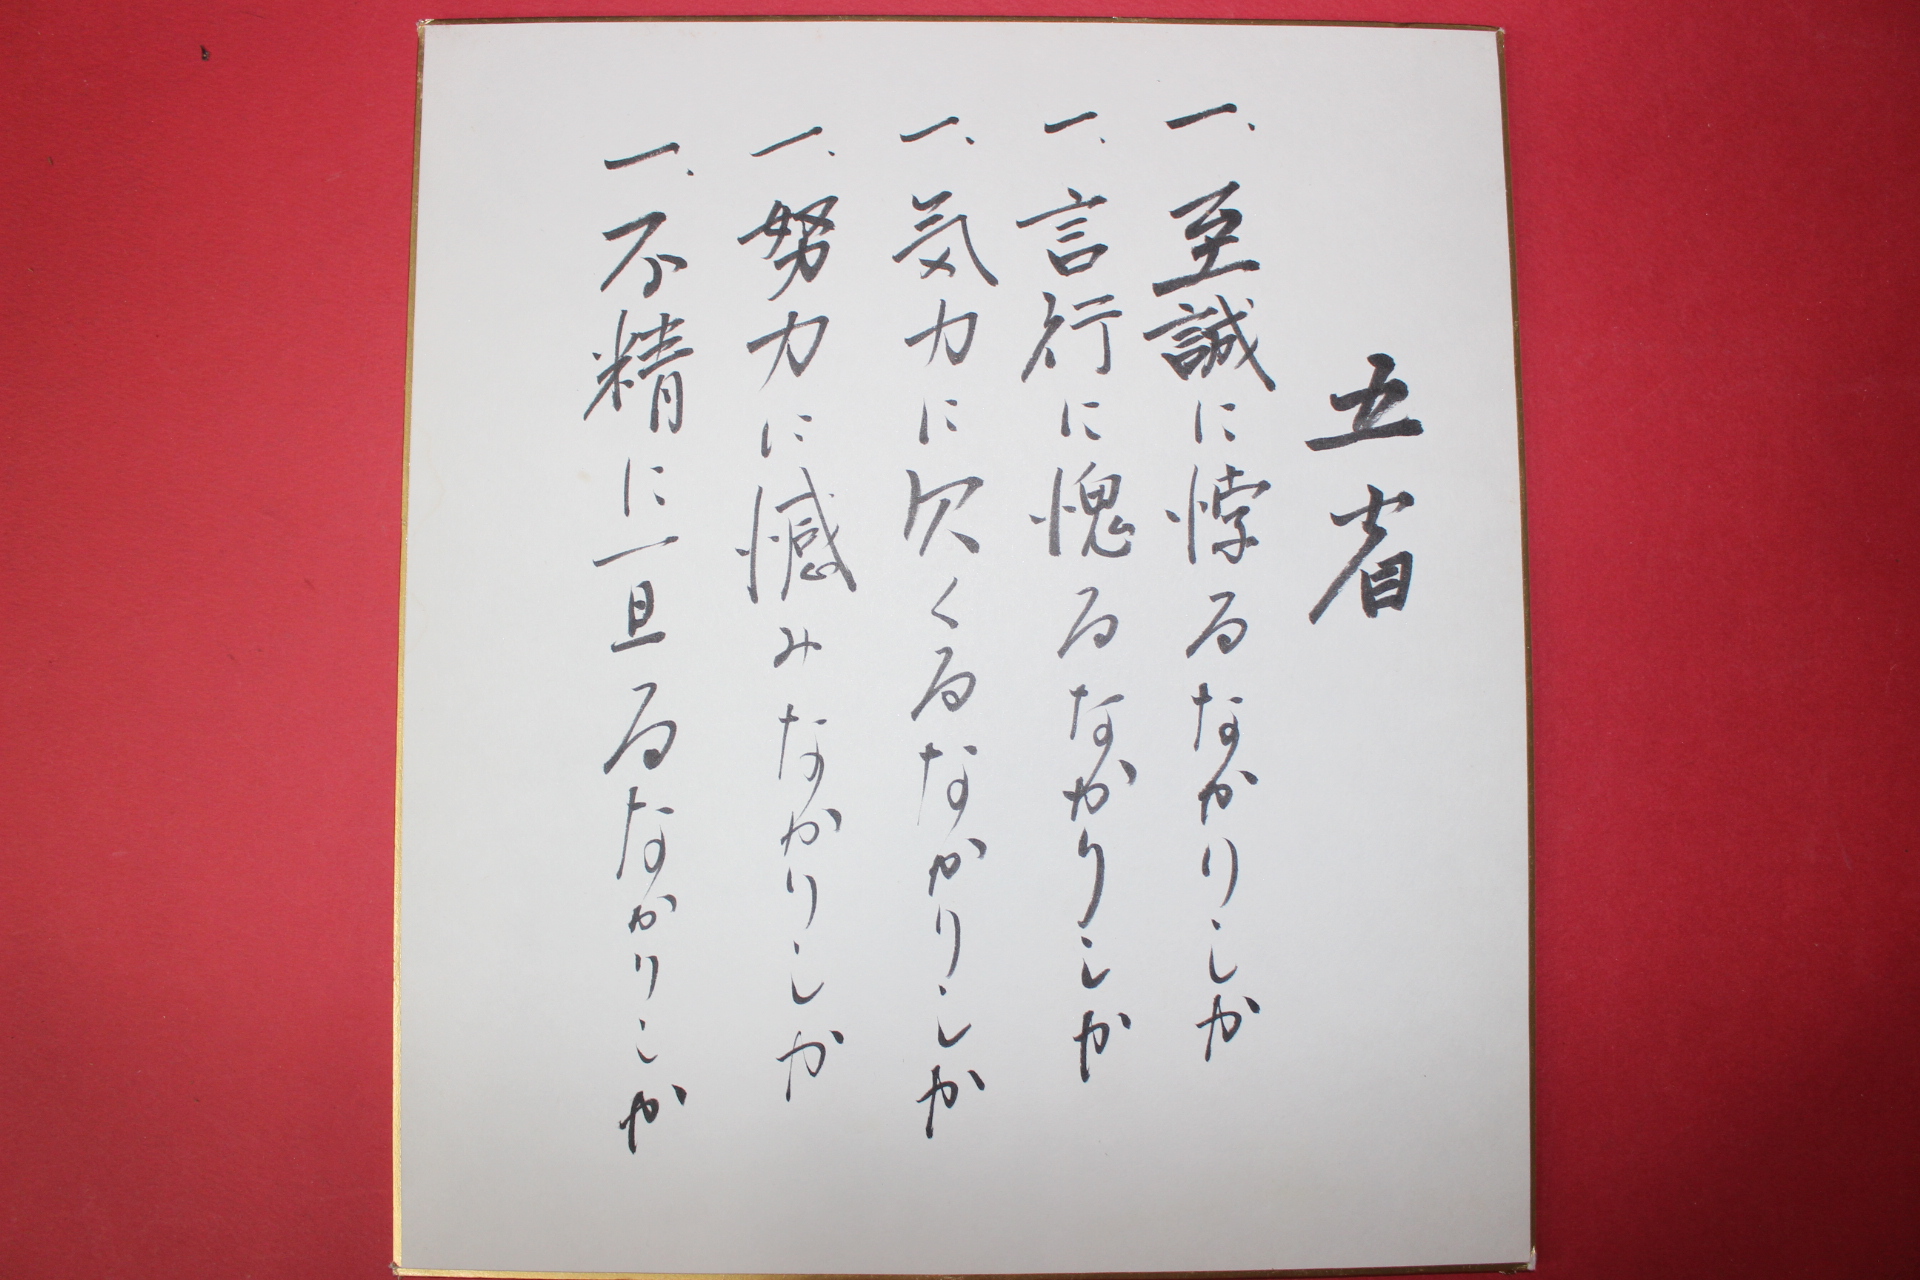 五省
一、至誠に悖るなかりしか
一、言行に愧るなかりしか
一、気力に欠くるなかりしか
一、努力に憾みなかりしか
一、不精に一旦るなかりしか